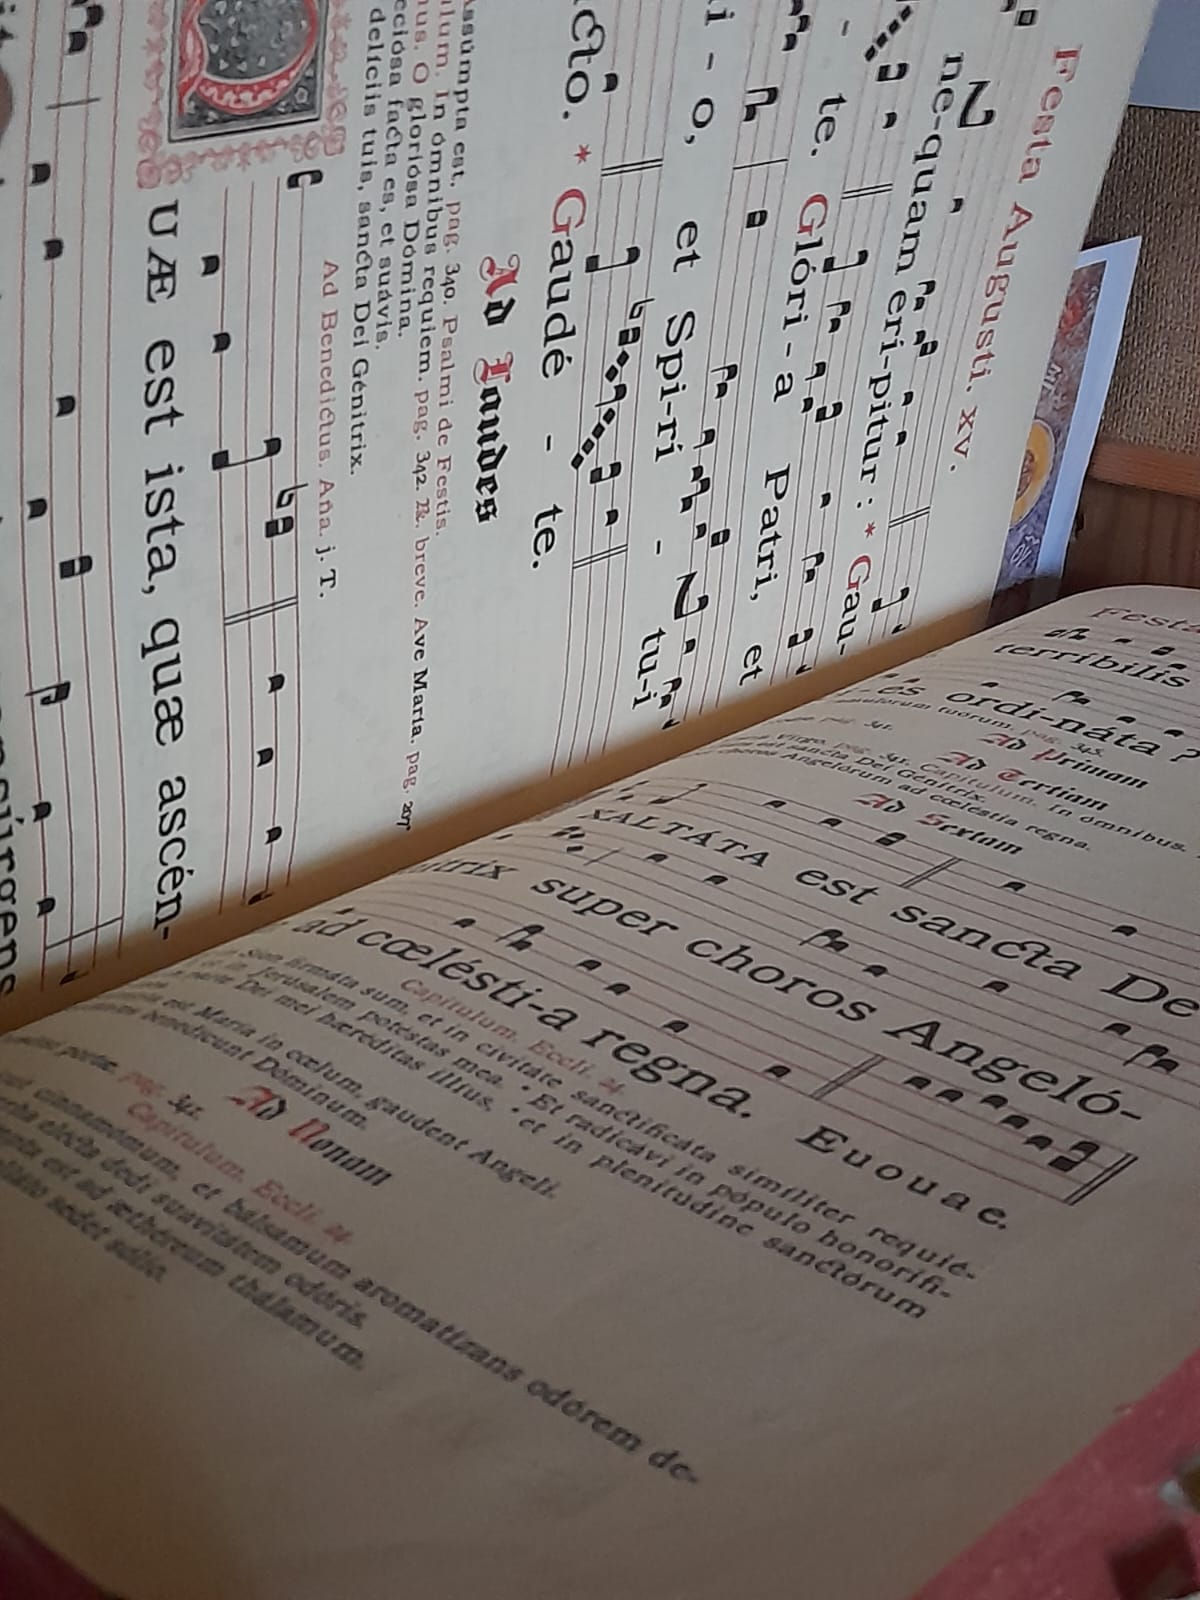 Festa Augusti. XV.
ne-quam eri-pitur : * Gau-
- te. Glóri - a Patri, et
i - o, et Spi-rí - tu-i
ncto. * Gaudé - te.
Ad Laudes
Assúmpta est, pag. 340. Psalmi de Festis.
In ómnibus requiem. pag. 342. ℟. breve. Ave María. pag. 207
O gloriósa Dómina.
facta es, et suávis,
delíciis tuis, sancta Dei Génitrix.
Ad Benedictus. Aña. j. T.
QUÆ est ista, quæ ascén-
Festa
terríbilis
ordi-náta ?
tuorum. pag. 345.
Ad Primam
Ad Tertiam
Virgo. pag. 341. Capitulum. In ómnibus.
est sancta Dei Génitrix.
Angelórum ad cœléstia regna.
Ad Sextam
XALTÁTA est sancta De
super choros Angeló-
ad cœlésti-a regna. Euouae.
Capitulum. Eccli. 24.
Sion firmáta sum, et in civitáte sanctificáta simíliter requié-
in Jerúsalem potéstas mea. * Et radicávi in pópulo honorifi-
parte Dei mei hæréditas illíus, * et in plenitúdine sanctórum
est María in cœlum, gaudent Angeli.
benedícunt Dóminum.
Ad Nonam
portæ. pag. 341.
Capitulum. Eccli. 24.
cinnamómum, et bálsamum aromatízans odórem de-
elécta dedi suavitátem odóris.
est ad æthéreum thálamum.
sedet sólio.